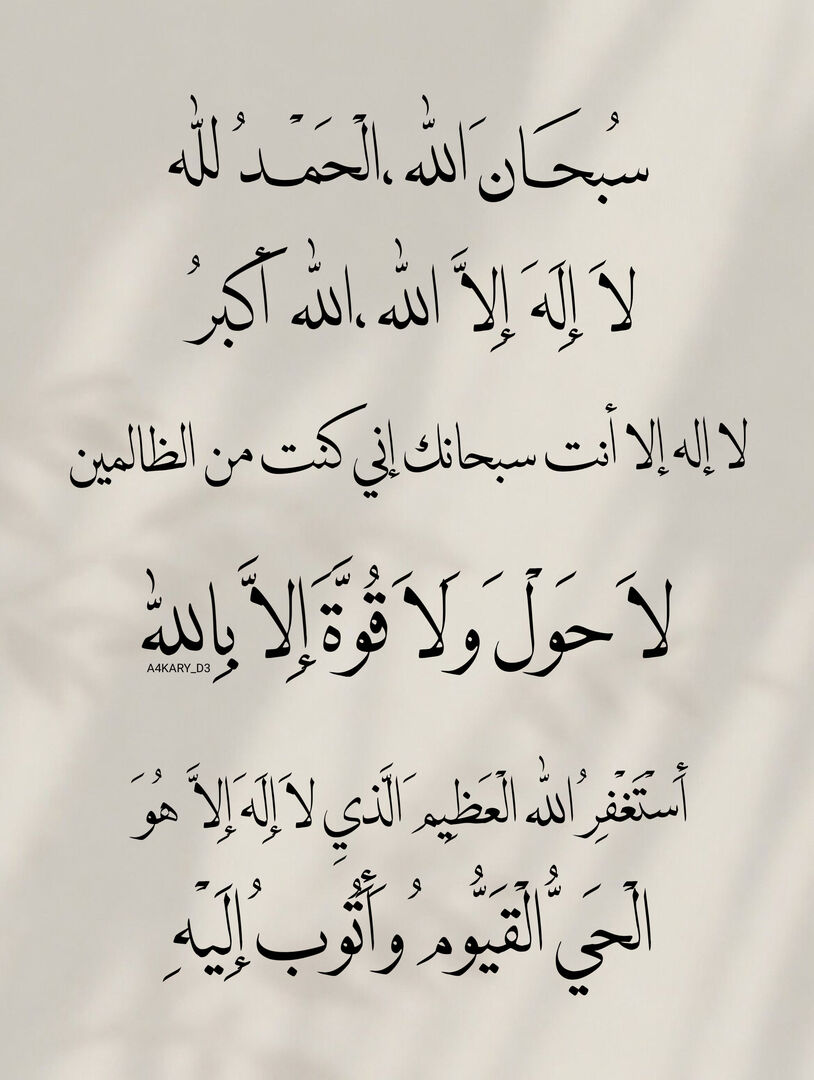 سُبْحَان َالله ،الْحَمْـد ُ للّه
لاَ إِلَه َ إِلاَّ الله ،الله أَكبر ُ
لا إله إلا أنت سبحانك إني كنت من الظالمين
لاَ حَوْلَ وَلاَ قُوَّةَ إِلاَّ بِالله
A4KARY_D3
أَسْتَغْفِر ُالله الْعَظِيم َالَّذيِ لاَ إِلَه َإِلاَّ هُوَ
الْحَيُّ الْقَيُّوم ُ وأَتُوب ُإِلَيْهِ